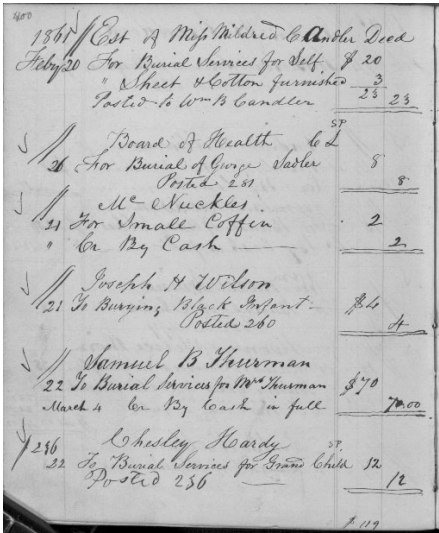 400
1865 // Est of Miss Mildred C Candler Deed
Feby 20 For Burial Services for Self $ 20
" Sheet & Cotton furnished 3
Posted to Wm B Candler 23 23
// Board of Health C L SP
20 For Burial of George Sadler 8
Posted 251 8
// Mc Nuckles
21 For Small Coffin 2
" Cr By Cash 2
// Joseph H Wilson
21 To Burying Black Infant $4
Posted 260 4
// Samuel B Thurman
22 To Burial Services for Mrs Thurman $70
March 4 Cr By Cash in full 70.00
256 Chesley Hardy SP.
22 To Burial Services for Grand Child 12
Posted 256 12
$ 119